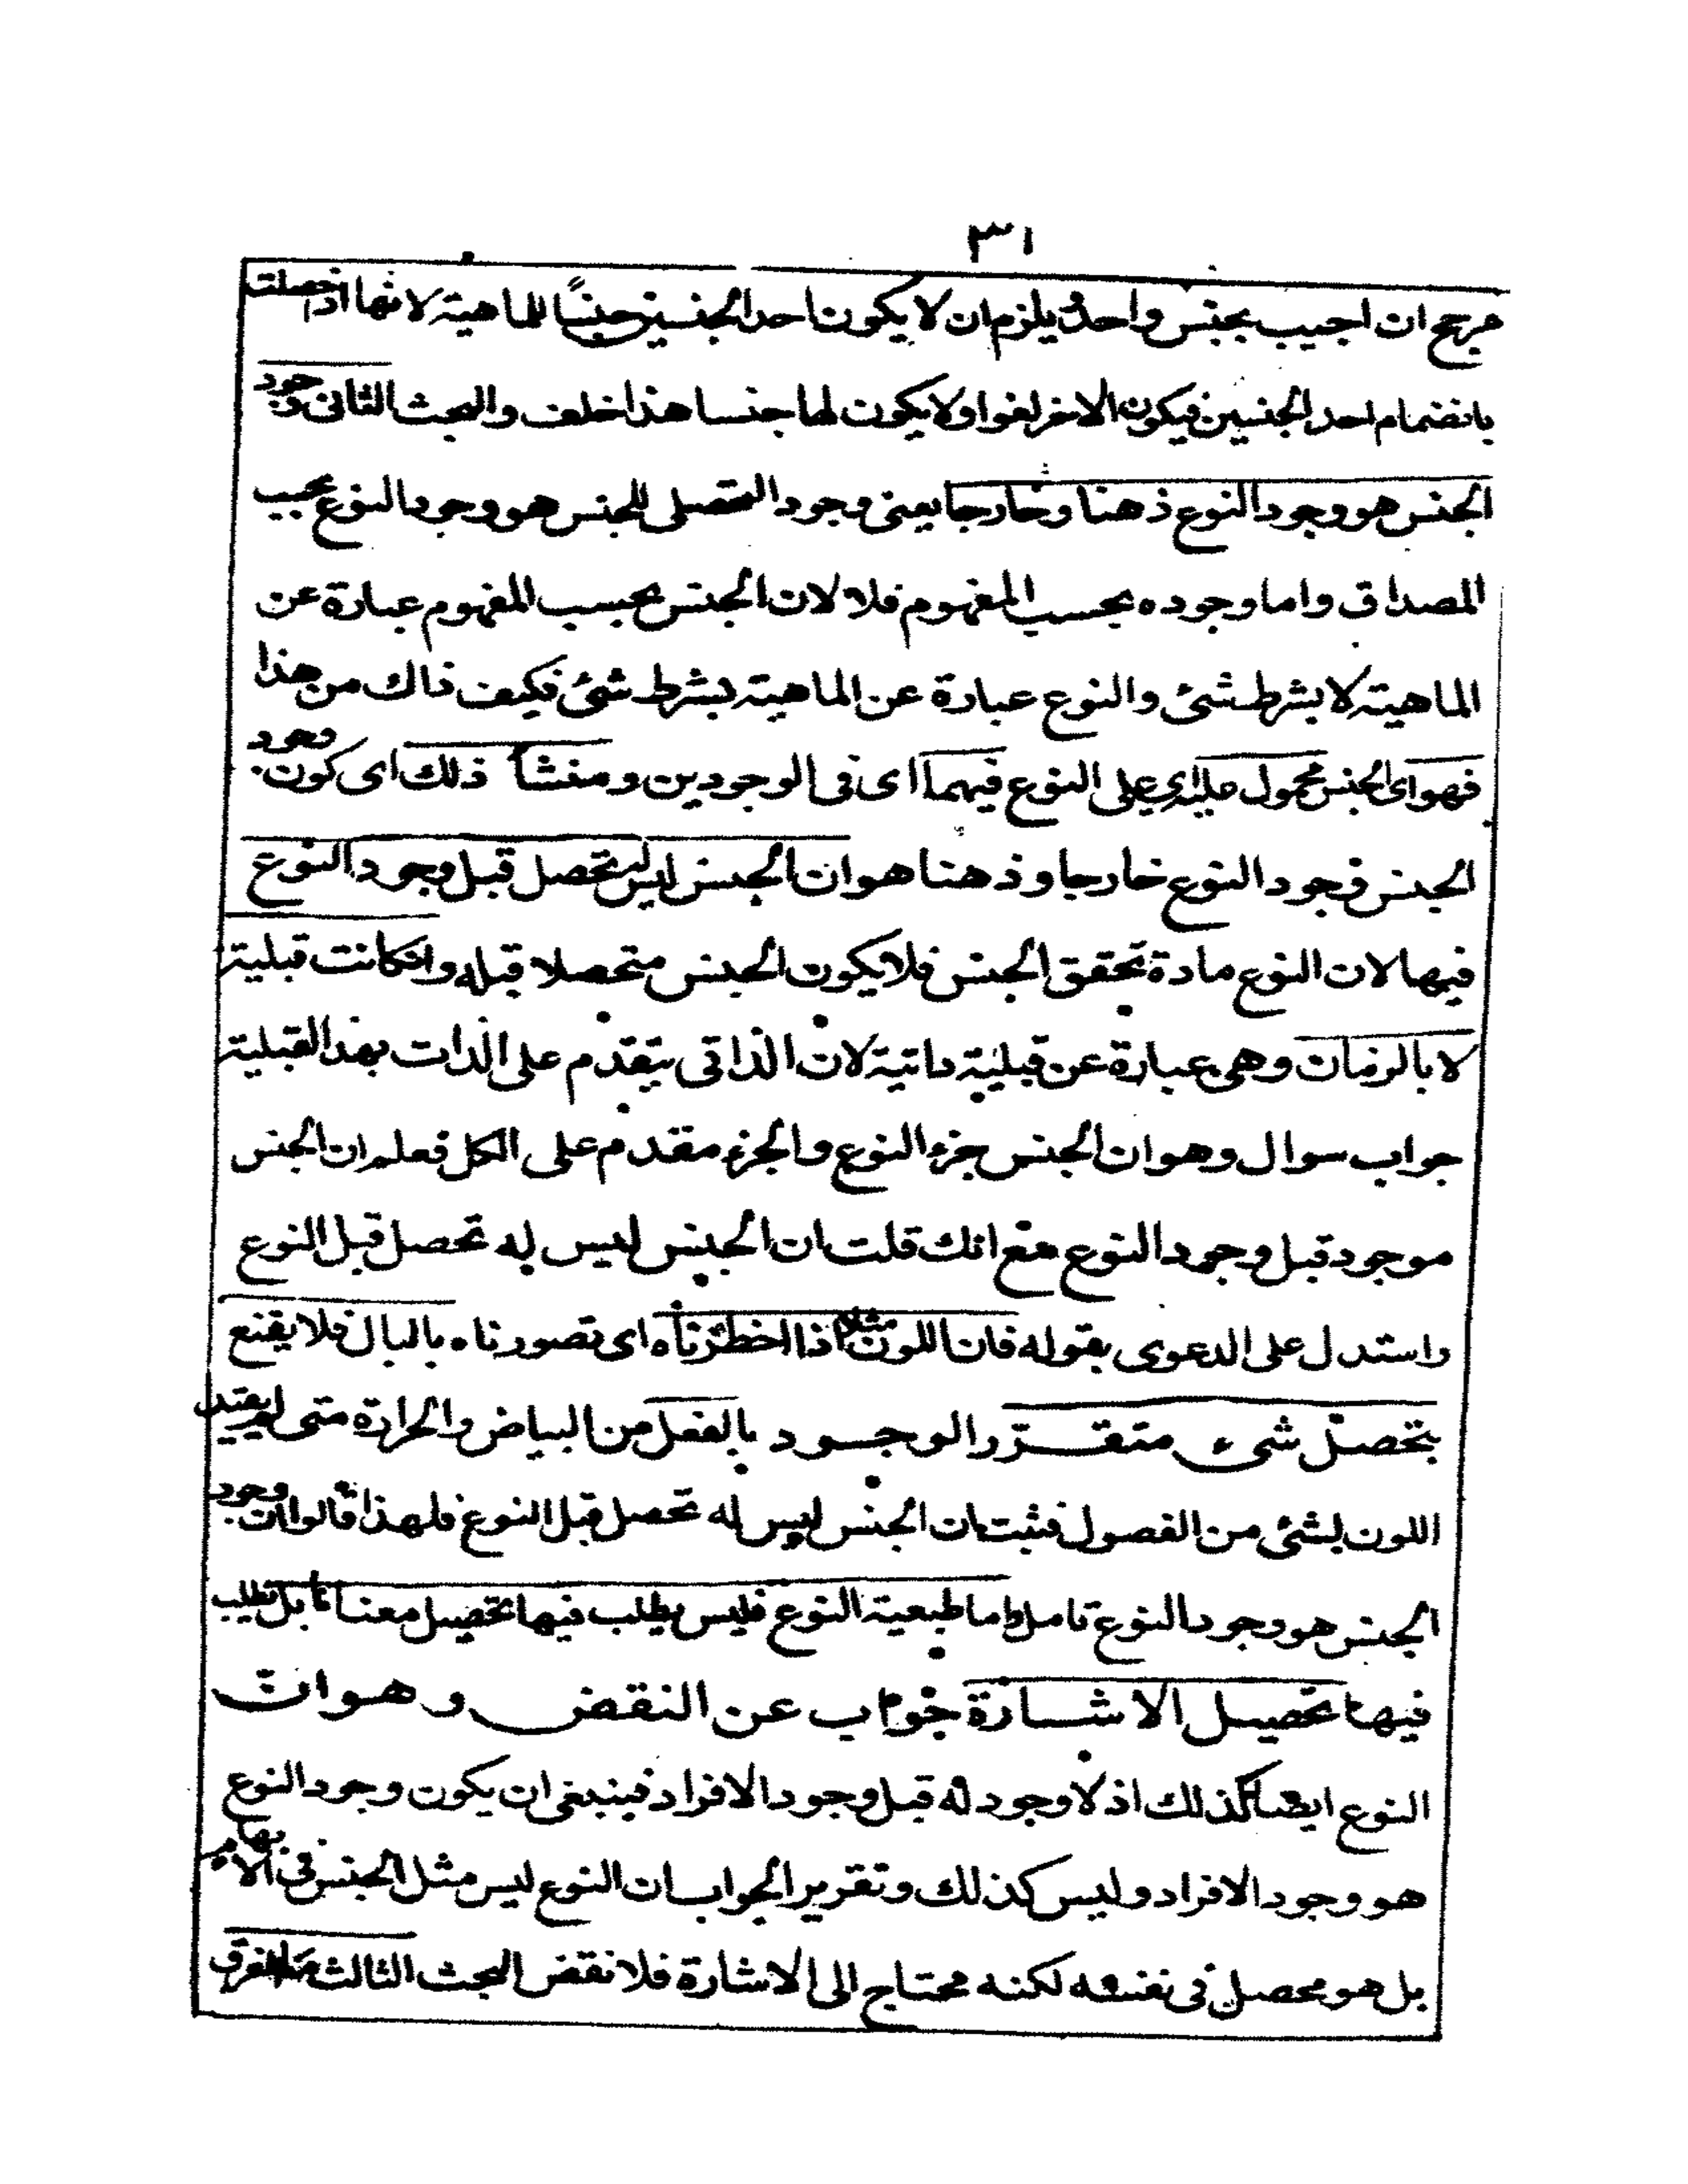 ٣١
مرجح ان اجيب بجنس واحد ويلزم ان لا يكون احد الجنسين جنسًا للماهية لانها اذا حصلت
بانضمام احد الجنسين فيكون الاخر لغوا ولا يكون لها جنسا هذا خلف والبحث الثانى وجود
الجنس هو وجود النوع ذهنا وخارجا يعنى وجود التحصلى للجنس هو وجود النوع بحسب
المصداق واما وجوده بحسب المفهوم فلا لان الجنس بحسب المفهوم عبارة عن
الماهية لا بشرط شئ والنوع عبارة عن الماهية بشرط شئ فكيف ذاك من هذا
فهو اى الجنس محمول عليه اى على النوع فيهما اى فى الوجودين ومنشأ ذلك اى كون وجود
الجنس وجود النوع خارجا وذهنا هو ان الجنس ليس له تحصل قبل وجود النوع
فيها لان النوع مادة تحقق الجنس فلا يكون الجنس متحصلا قبله وانكانت قبلية
لا بالزمان وهى عبارة عن قبلية ذاتية لان الذاتى يتقدم على الذات بهذا القبلية
جواب سوال وهو ان الجنس جزء النوع والجزء مقدم على الكل فعلم ان الجنس
موجود قبل وجود النوع مع انك قلت ان الجنس ليس له تحصل قبل النوع
واستدل على الدعوى بقوله فان اللون مثلا اذا اخطرناه اى تصورناه بالبال فلا يقنع
بتحصل شىء متقرر الوجود بالفعل من البياض والحرارة متى لم يقيد
اللون بشئ من الفصول فثبت ان الجنس ليس له تحصل قبل النوع فلهذا قالوا ان وجود
الجنس هو وجود النوع تامل واما طبيعة النوع فليس يطلب فيها تحصيل معناها بل يطلب
فيها تحصيل الاشارة جواب عن النقض وهو ان
النوع ايضا كذلك اذ لا وجود له قبل وجود الافراد فينبغى ان يكون وجود النوع
هو وجود الافراد وليس كذلك وتقرير الجواب ان النوع ليس مثل الجنس فى الابهام
بل هو محصل فى نفسه لكنه محتاج الى الاشارة فلا نقض البحث الثالث ما الفرق